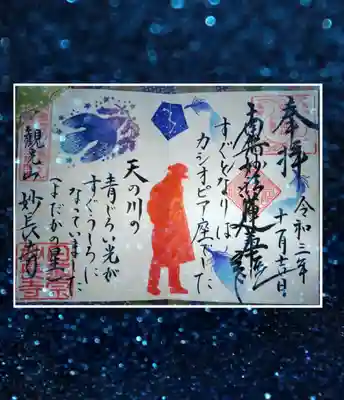 奉拝
令和三年
南無妙法蓮華経
すぐとなりは、
カシオピア座でした
天の川の
青じろい光が
すぐうしろに
なっていました。
(よだかの星)
観光山 妙長寺